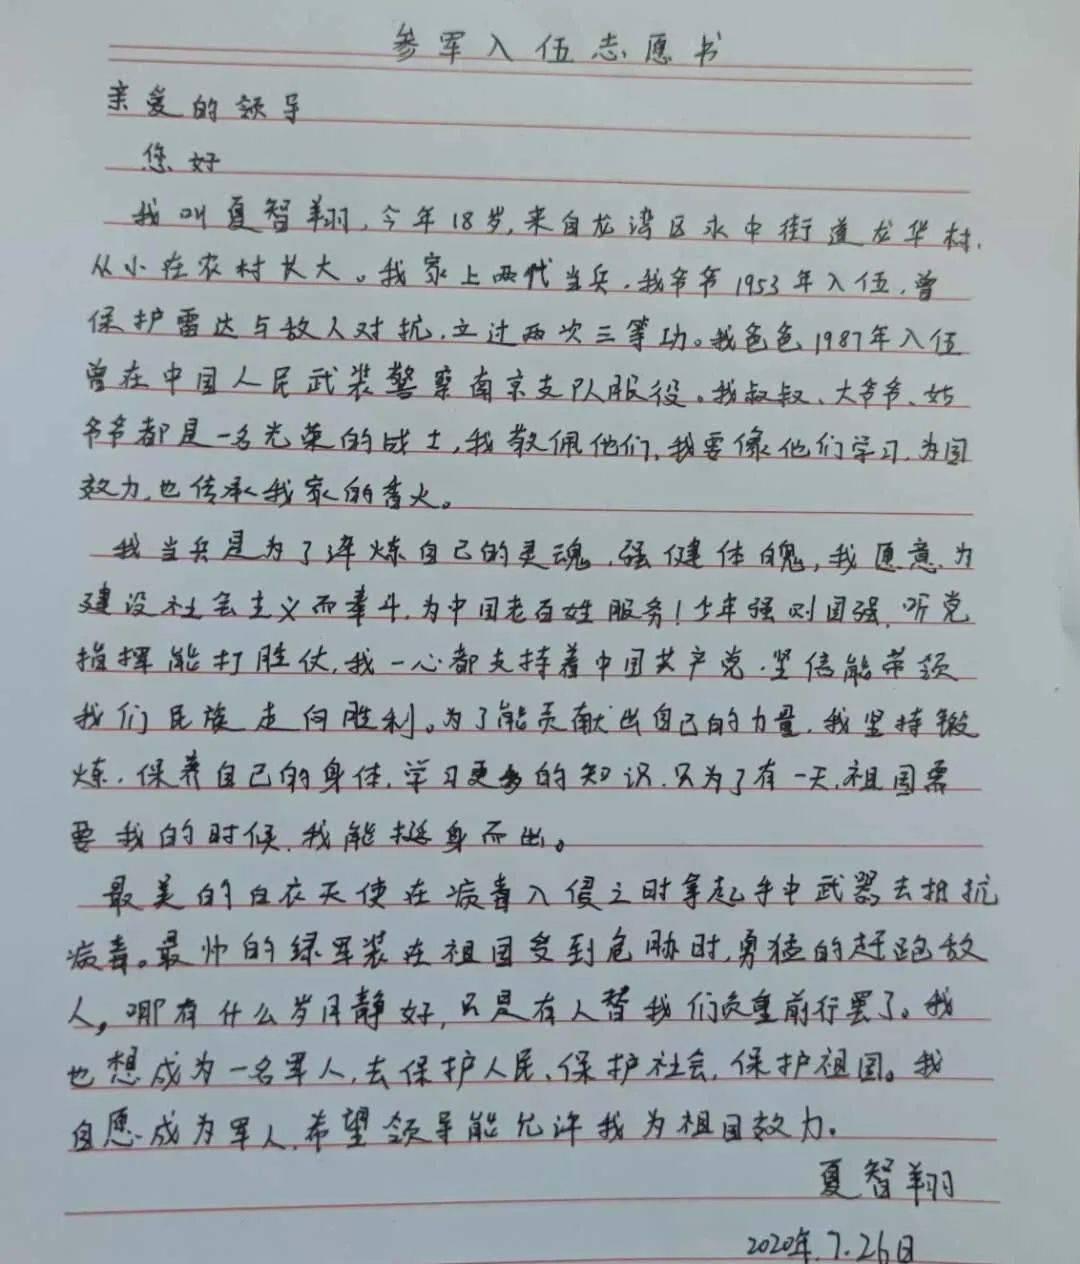 参军入伍志愿书
亲爱的领导
您好
我叫夏智翔，今年18岁，来自龙湾区永中街道龙华村，
从小在农村长大。我家上两代当兵，我爷爷1953年入伍，曾
保护雷达与敌人对抗，立过两次三等功。我爸爸1987年入伍
曾在中国人民武装警察南京支队服役。我叔叔、大爷爷、姑
爷爷都是一名光荣的战士，我敬佩他们，我要像他们学习，为国
效力，也传承我家的香火。
我当兵是为了淬炼自己的灵魂，强健体魄，我愿意为
建设社会主义而奉斗，为中国老百姓服务！少年强则国强，听党
指挥能打胜仗，我一心都支持着中国共产党，坚信能带领
我们民族走向胜利。为了能贡献出自己的力量，我坚持锻
炼，保养自己的身体，学习更多的知识，只为了有一天，祖国需
要我的时候，我能挺身而出。
最美的白衣天使在病毒入侵之时拿起手中武器去抵抗
病毒。最帅的绿军装在祖国受到危胁时，勇猛的赶跑敌
人，哪有什么岁月静好，只是有人替我们负重前行罢了。我
也想成为一名军人，去保护人民、保护社会，保护祖国。我
自愿成为军人，希望领导能允许我为祖国效力。
夏智翔
2020年.7.26日